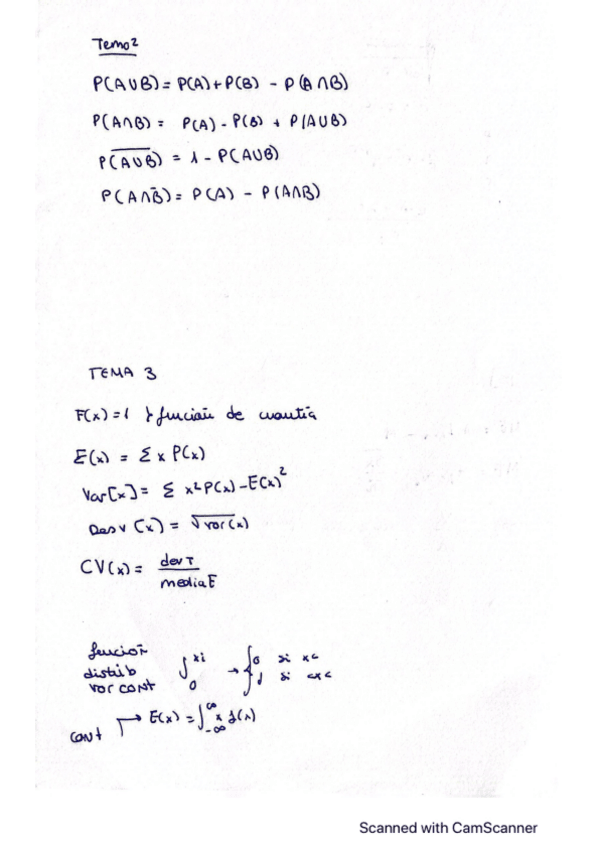 Tema 2
P(A∪B) = P(A) + P(B) - P(A∩B)
P(A∩B) = P(A) - P(B) + P(A∪B)
P(A̅∪̅B̅) = 1 - P(A∪B)
P(A∩B̅) = P(A) - P(A∩B)
TEMA 3
F(x) = 1 } función de cuantía
E(x) = Σ x P(x)
Var[x] = Σ x² P(x) - E(x)²
Desv (x) = √var(x)
CV(x) = desv T / media E
función
distrib
var cont
∫ xi 0 → { 0 si x<
1 si <x<
cont → E(x) = ∫ ∞ -∞ x f(x)
Scanned with CamScanner